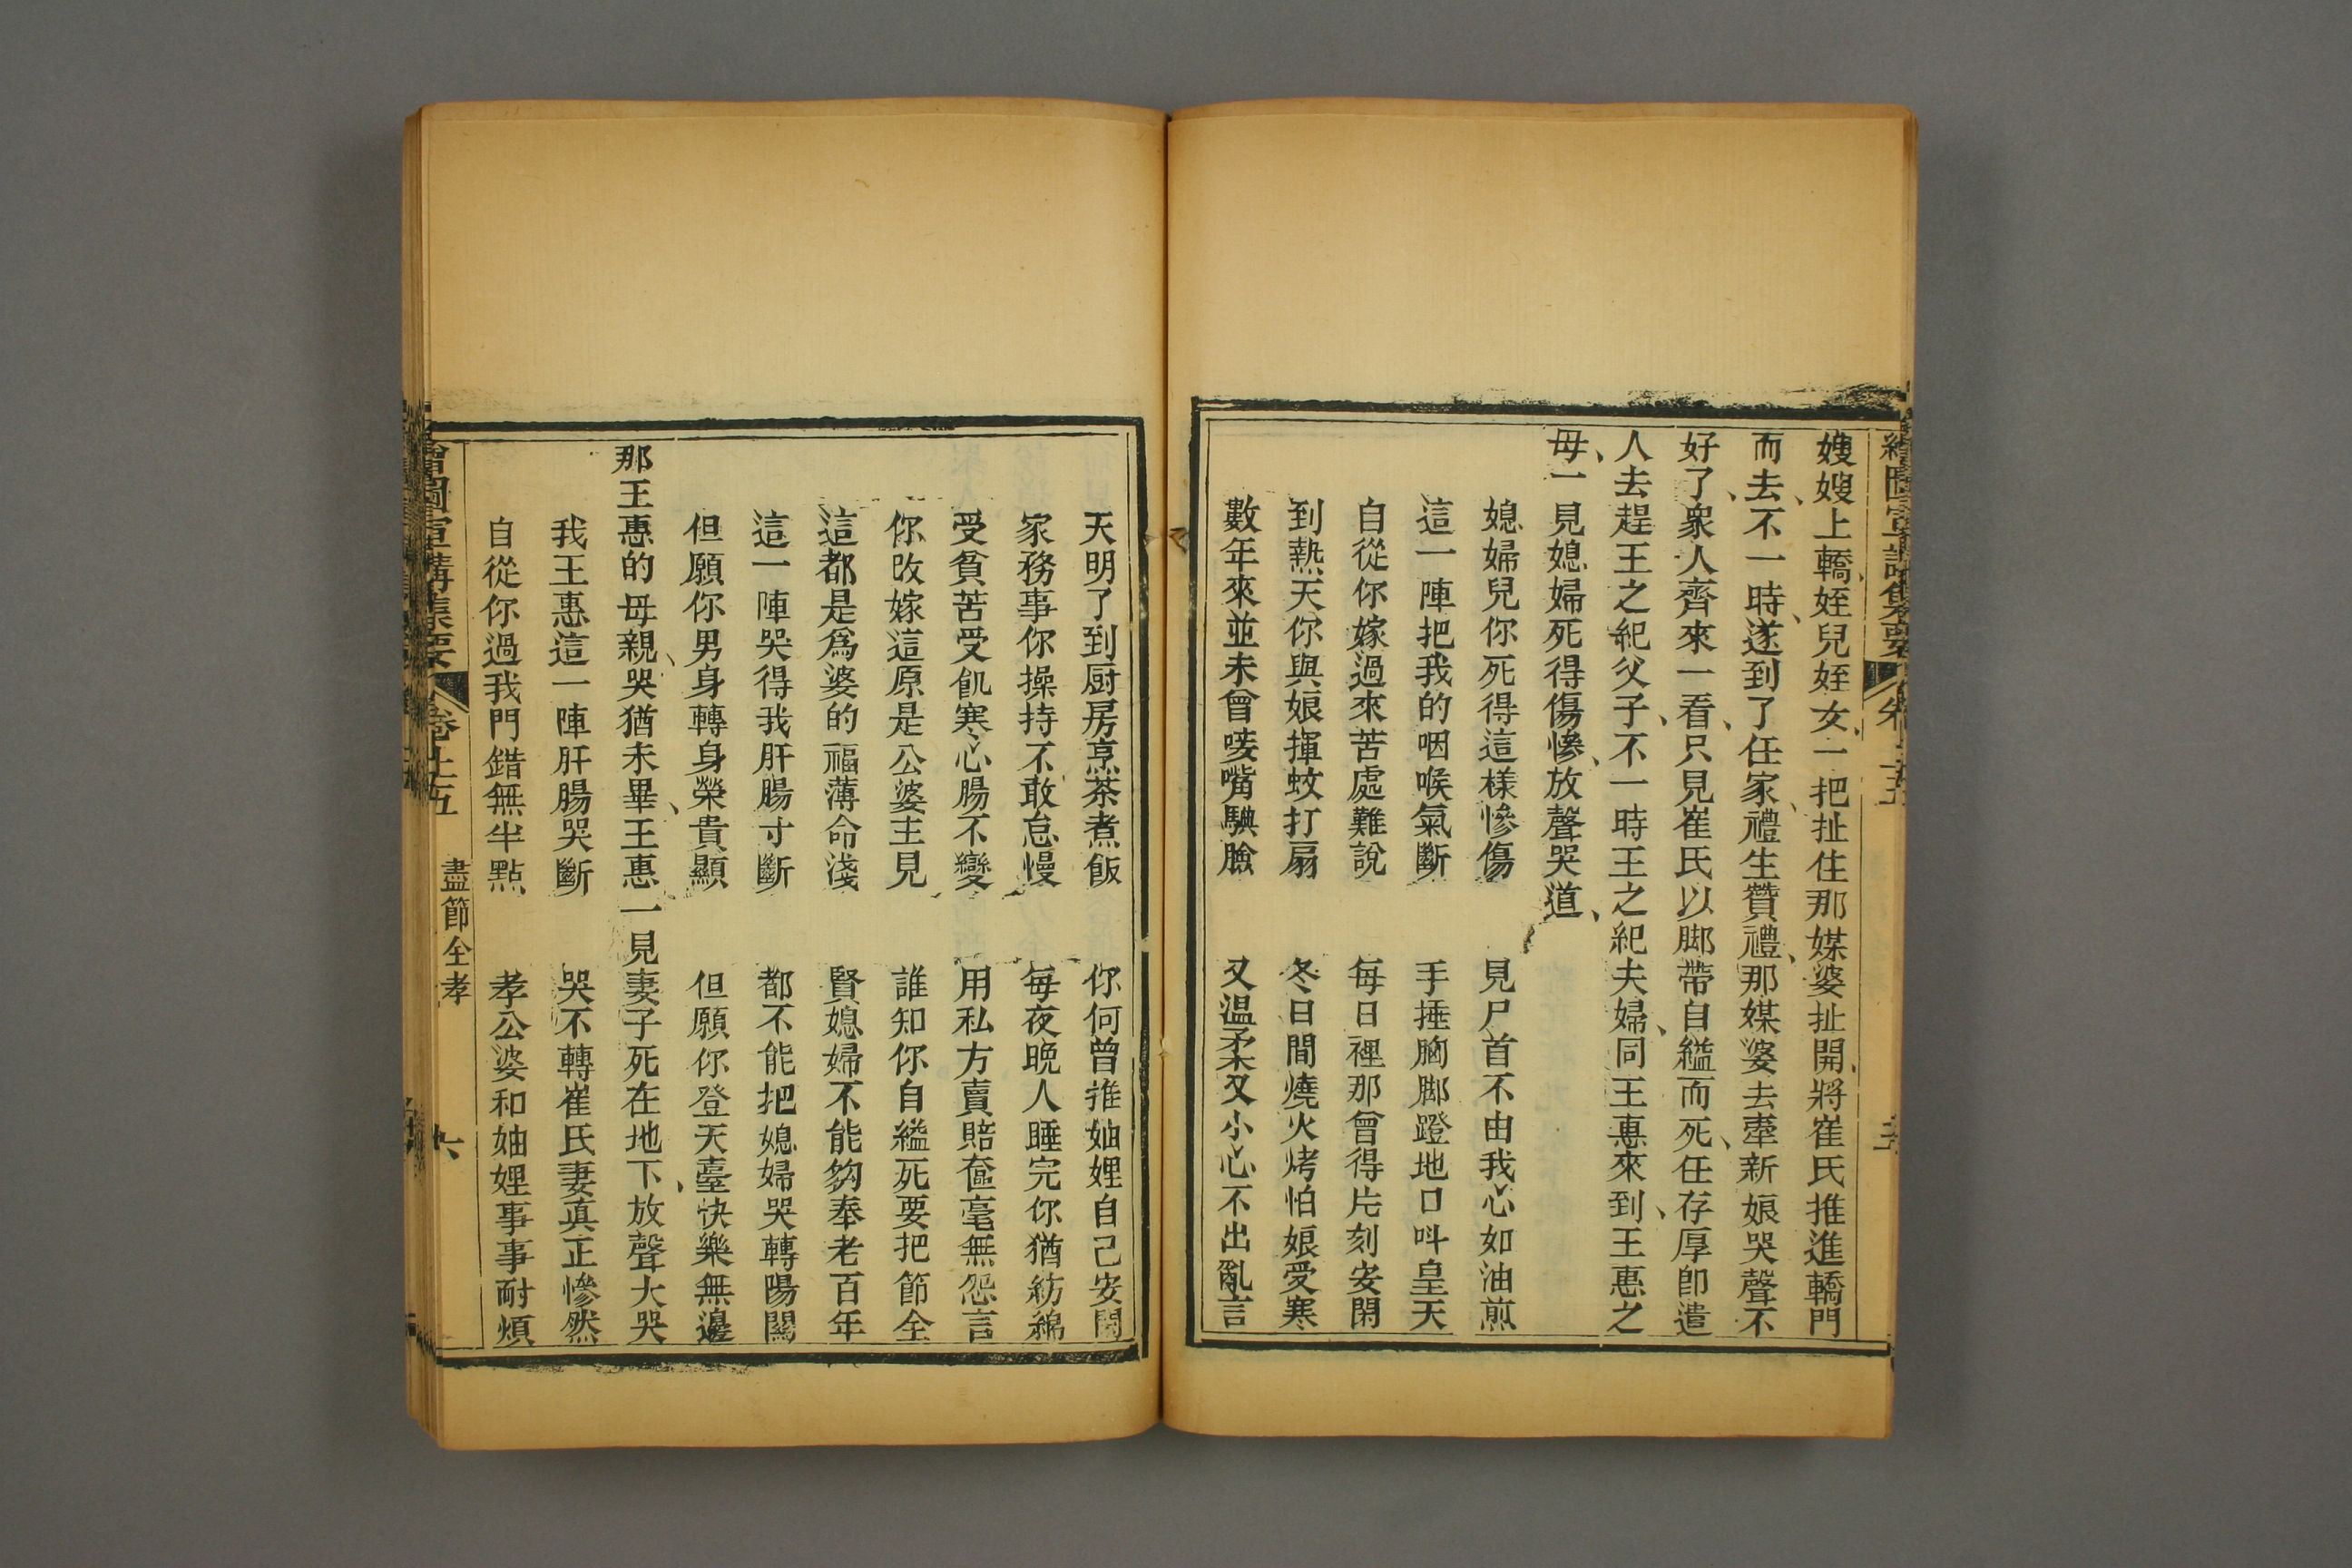 嫂嫂上轎、姪兒姪女、一把扯住那媒婆扯開、將崔氏推進轎門
而去、不一時、遂到了任家、禮生贊禮、那媒婆去牽新娘哭聲不
好了、衆人齊來一看、只見崔氏以脚帶自縊而死、任存厚卽遣
人去趕王之紀父子、不一時王之紀夫婦、同王惠來到、王惠之
母、一見媳婦死得傷慘、放聲哭道、
媳婦兒你死得這樣慘傷　見尸首不由我心如油煎
這一陣把我的咽喉氣斷　手捶胸脚蹬地口呌皇天
自從你嫁過來苦處難說　每日裡那曾得片刻安閑
到熱天你與娘揮蚊打扇　冬日間燒火烤怕娘受寒
數年來並未曾唛嘴䩄臉　又溫柔又小心不出亂言
天明了到厨房烹茶煮飯　你何曾推妯娌自己安閑
家務事你操持不敢怠慢　每夜晚人睡完你猶紡綿
受貧苦受飢寒心腸不變　用私方賣賠奩毫無怨言
你改嫁這原是公婆主見　誰知你自縊死要把節全
這都是爲婆的福薄命淺　賢媳婦不能夠奉老百年
這一陣哭得我肝腸寸斷　都不能把媳婦哭轉陽關
但願你男身轉身榮貴顯　但願你登天臺快樂無邊
那王惠的母親、哭猶未畢、王惠一見妻子死在地下、放聲大哭
我王惠這一陣肝腸哭斷　哭不轉崔氏妻眞正慘然
自從你過我門錯無半點　孝公婆和妯娌事事耐煩
繪圖宣講集要　卷十五　盡節全孝　六